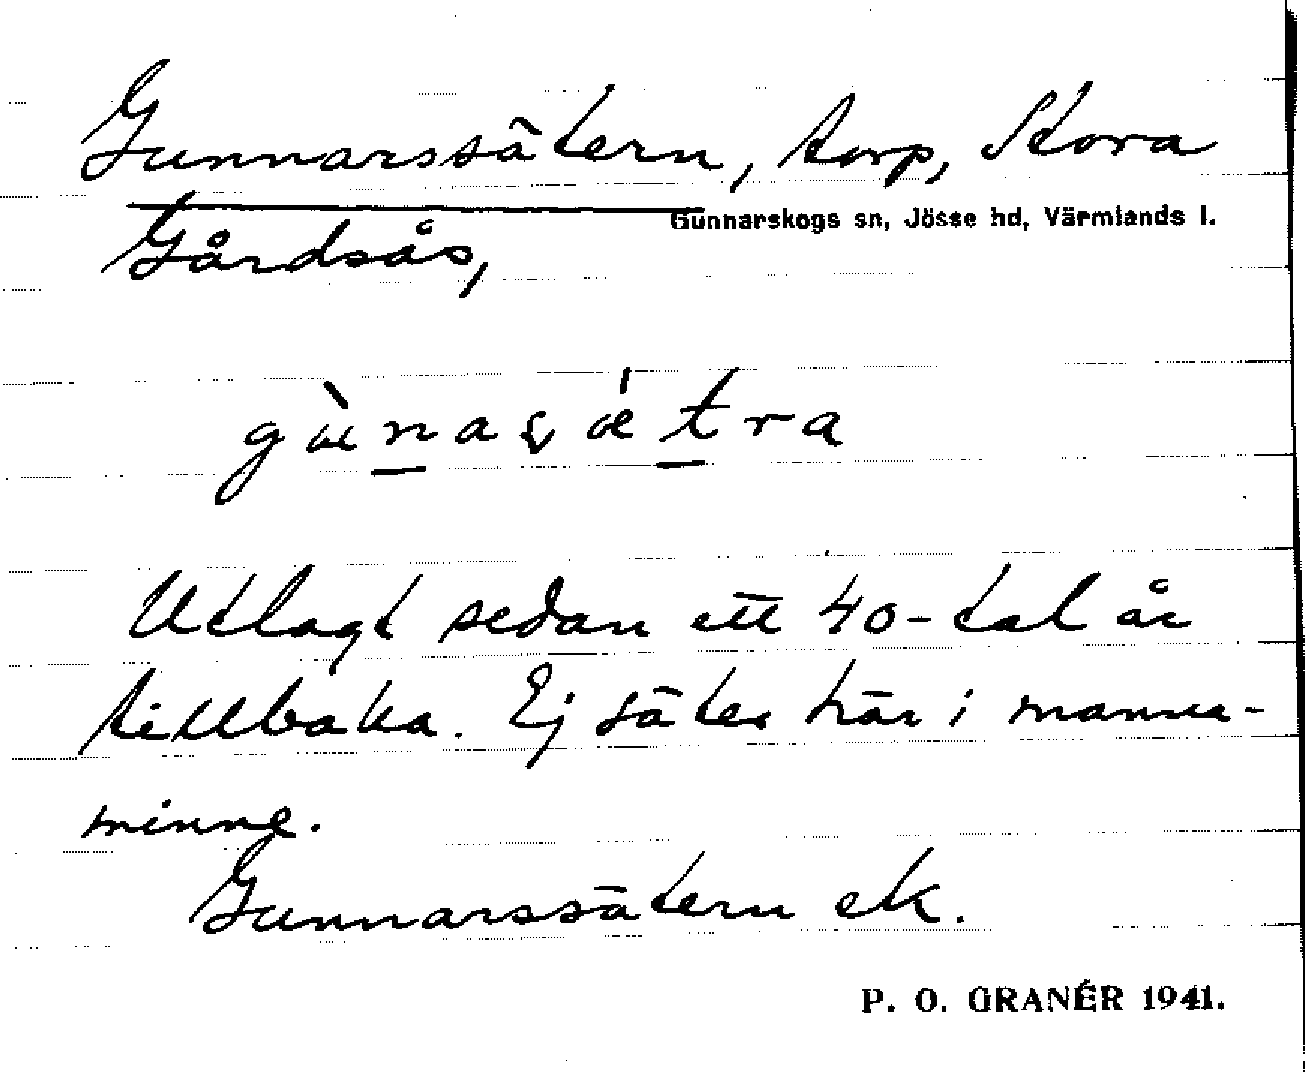 Gunnarssätern, torp, Stora
Gunnarskogs sn, Jösse hd, Värmlands l.
Gårdsås,
Utlagt sedan ett 40-tal år
tillbaka. Ej säter här i manna-
minne.
Gunnarssätern ek.
P. O. GRANÉR 1941.